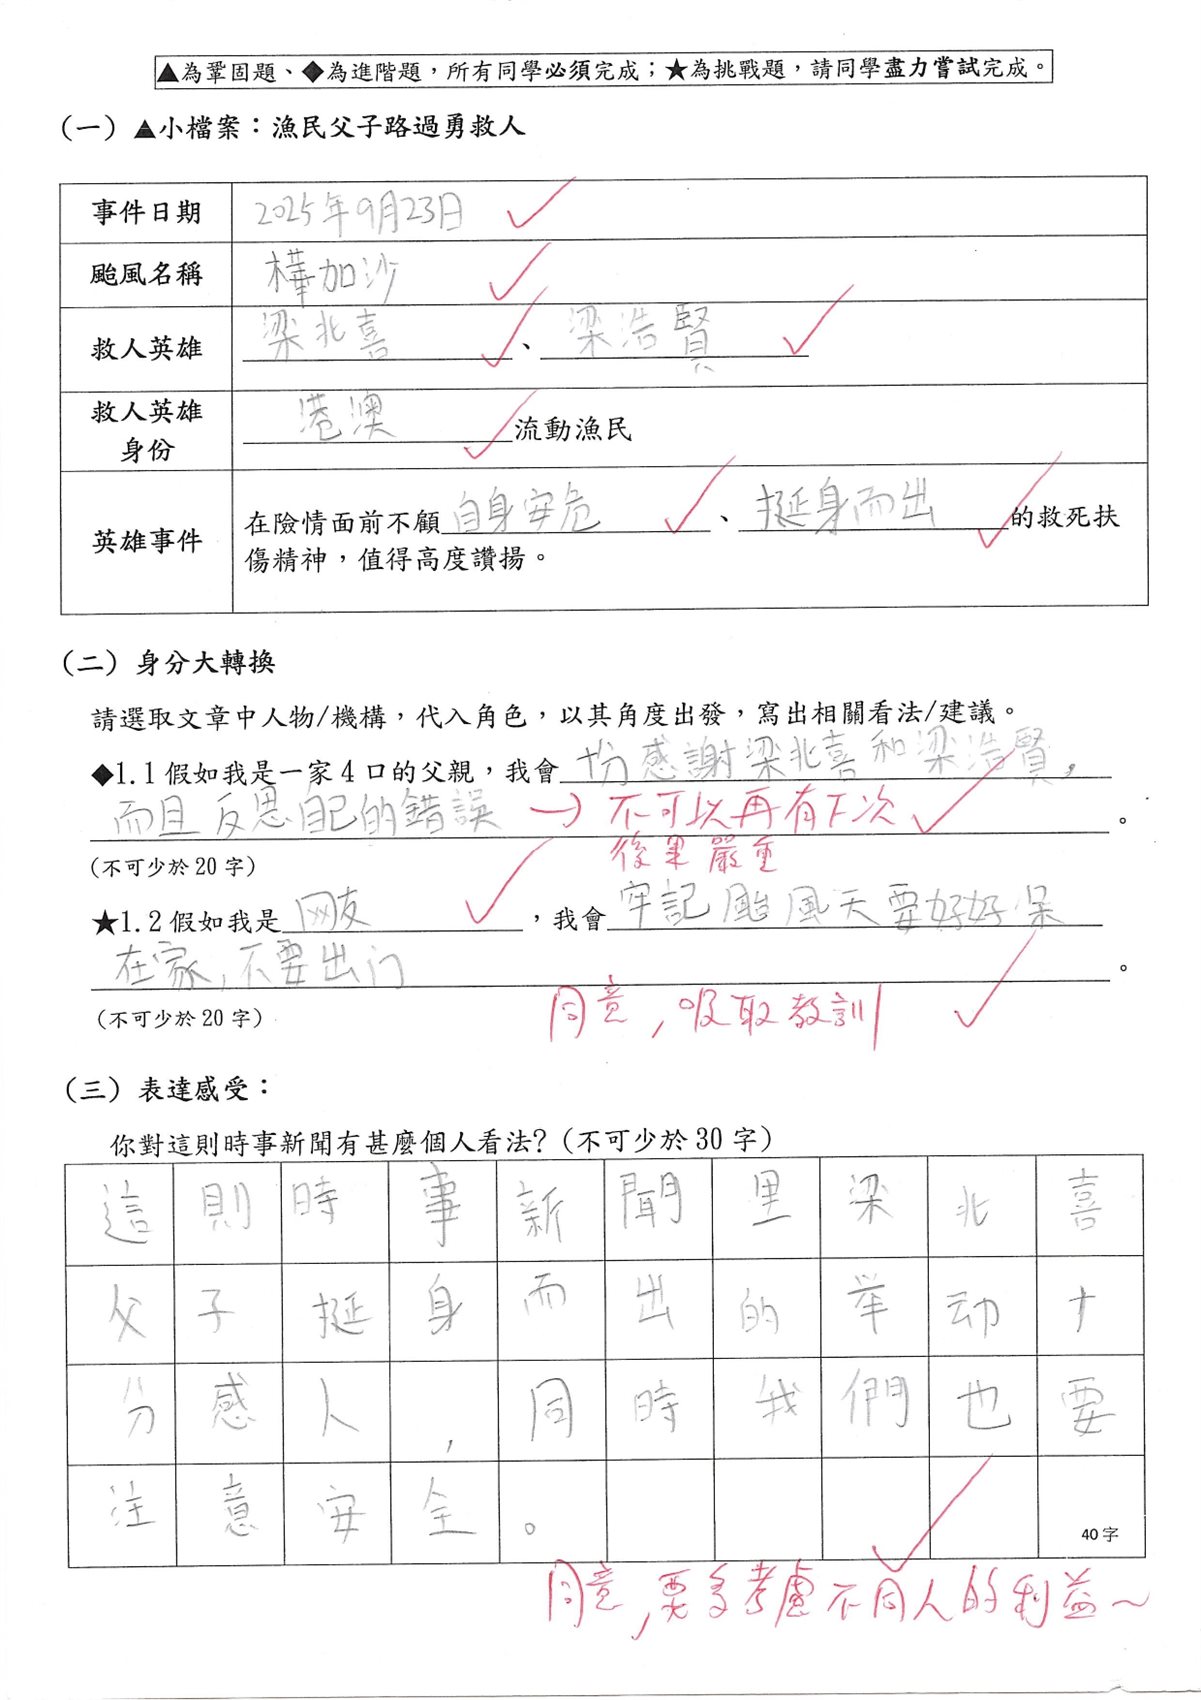 ▲為鞏固題、◆為進階題，所有同學必須完成；★為挑戰題，請同學盡力嘗試完成。
（一）▲小檔案：漁民父子路過勇救人
事件日期 2025年9月23日
颱風名稱 樺加沙
救人英雄 梁北喜、梁浩賢
救人英雄
身份
港澳流動漁民
英雄事件
在險情面前不顧自身安危、挺身而出的救死扶
傷精神，值得高度讚揚。
（二）身分大轉換
請選取文章中人物/機構，代入角色，以其角度出發，寫出相關看法/建議。
◆1.1 假如我是一家 4 口的父親，我會十分感謝梁北喜和梁浩賢，
而且反思自已的錯誤 → 不可以再有下次。
後果嚴重
(不可少於 20 字)
★1.2 假如我是网友，我會牢記颱風天要好好呆
在家，不要出门。
同意，吸取教訓
(不可少於 20 字)
（三）表達感受：
你對這則時事新聞有甚麼個人看法?(不可少於 30 字)
這則時事新聞里梁北喜
父子挺身而出的举动十
分感人，同時我們也要
注意安全。
40 字
同意，要多考慮不同人的利益～